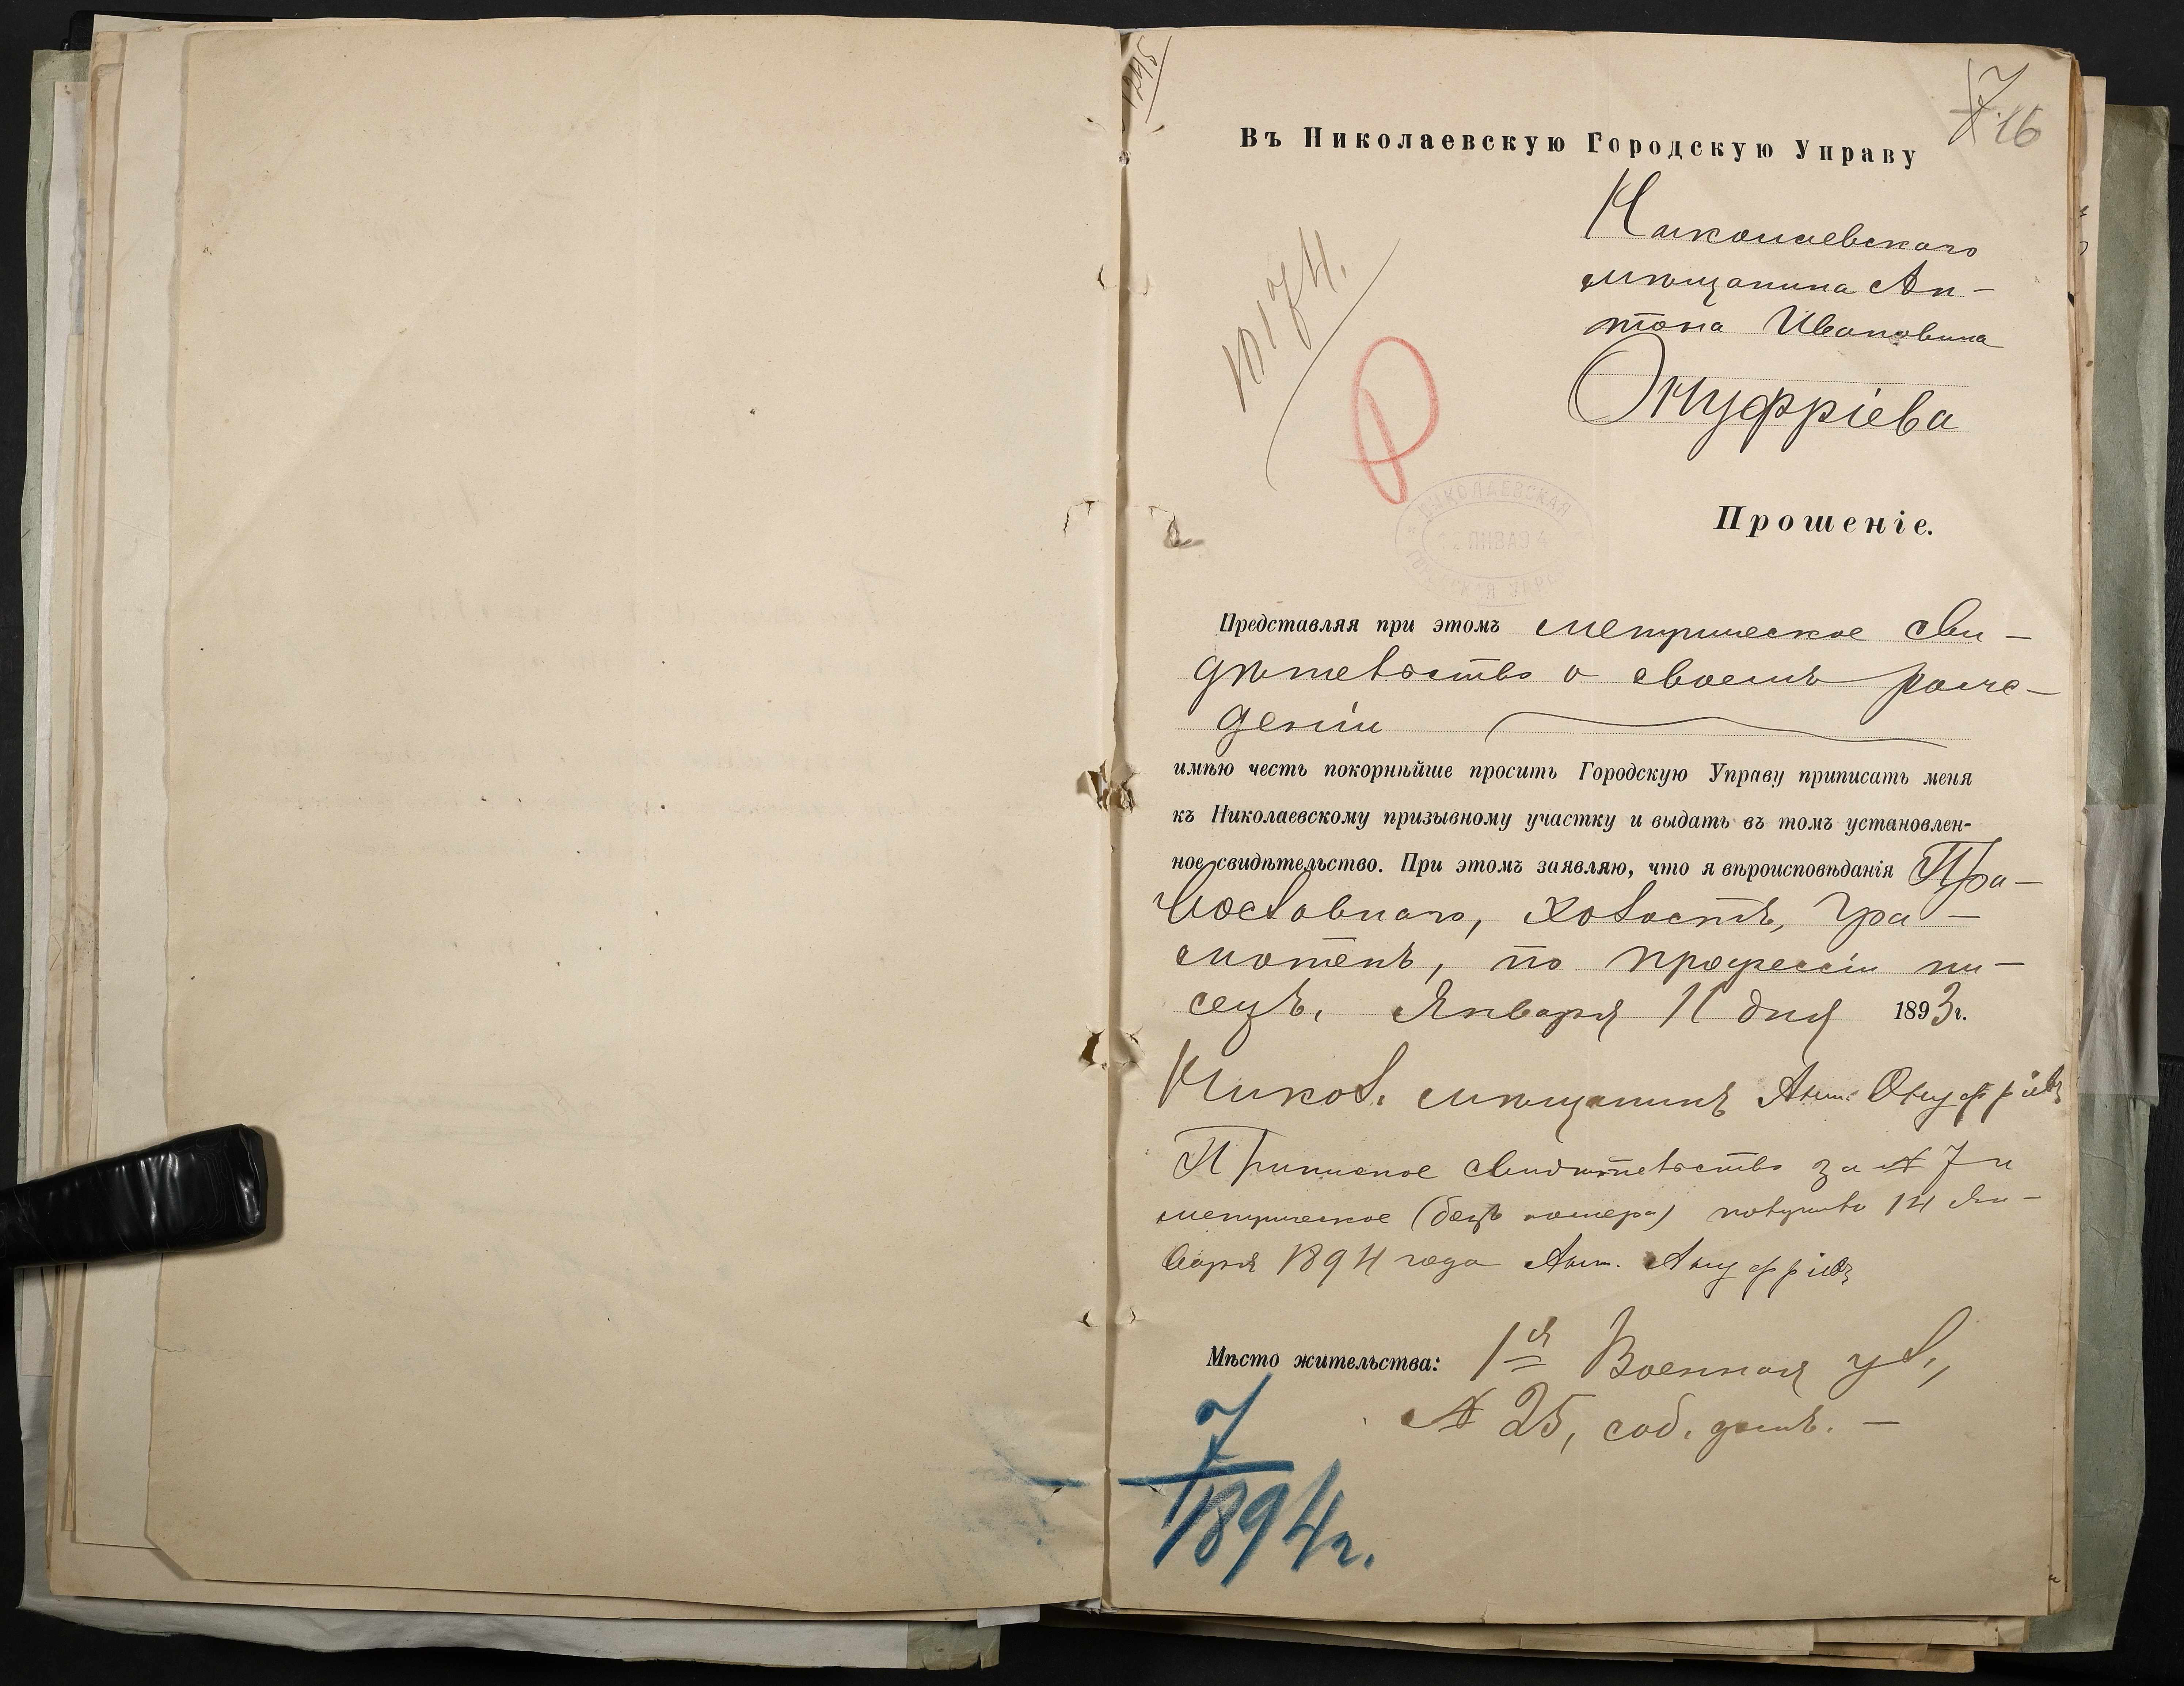 7 16
Въ Николаевскую Городскую Управу
Николаевскаго
мѣщанина Ан-
тона Ивановича
Онуфріева
10174.
НИКОЛАЕВСКАЯ
12 ЯНВА94
ГОРОДСКАЯ УПРА
Прошеніе.
Представляя при этомъ метрическое сви-
дѣтельство о своемъ рож-
деніи
имѣю честь покорнѣйше просить Городскую Управу приписать меня
къ Николаевскому призывному участку и выдать въ томъ установлен-
ное свидѣтельство. При этомъ заявляю, что я вѣроисповѣданія Пра-
вославнаго, холостъ, гра-
мотенъ, по профессіи пи-
сецъ. Января 11 дня 1893г.
Никол. мѣщанинъ Ант. Онуфріевъ
Приписное свидѣтельство за № 7 и
метрическое (безъ номера) получилъ 14 Ян-
варя 1894 года Ант. Ануфріевъ
Мѣсто жительства: 1я Военная ул.,
№ 25, соб. домъ. —
7
1894г.